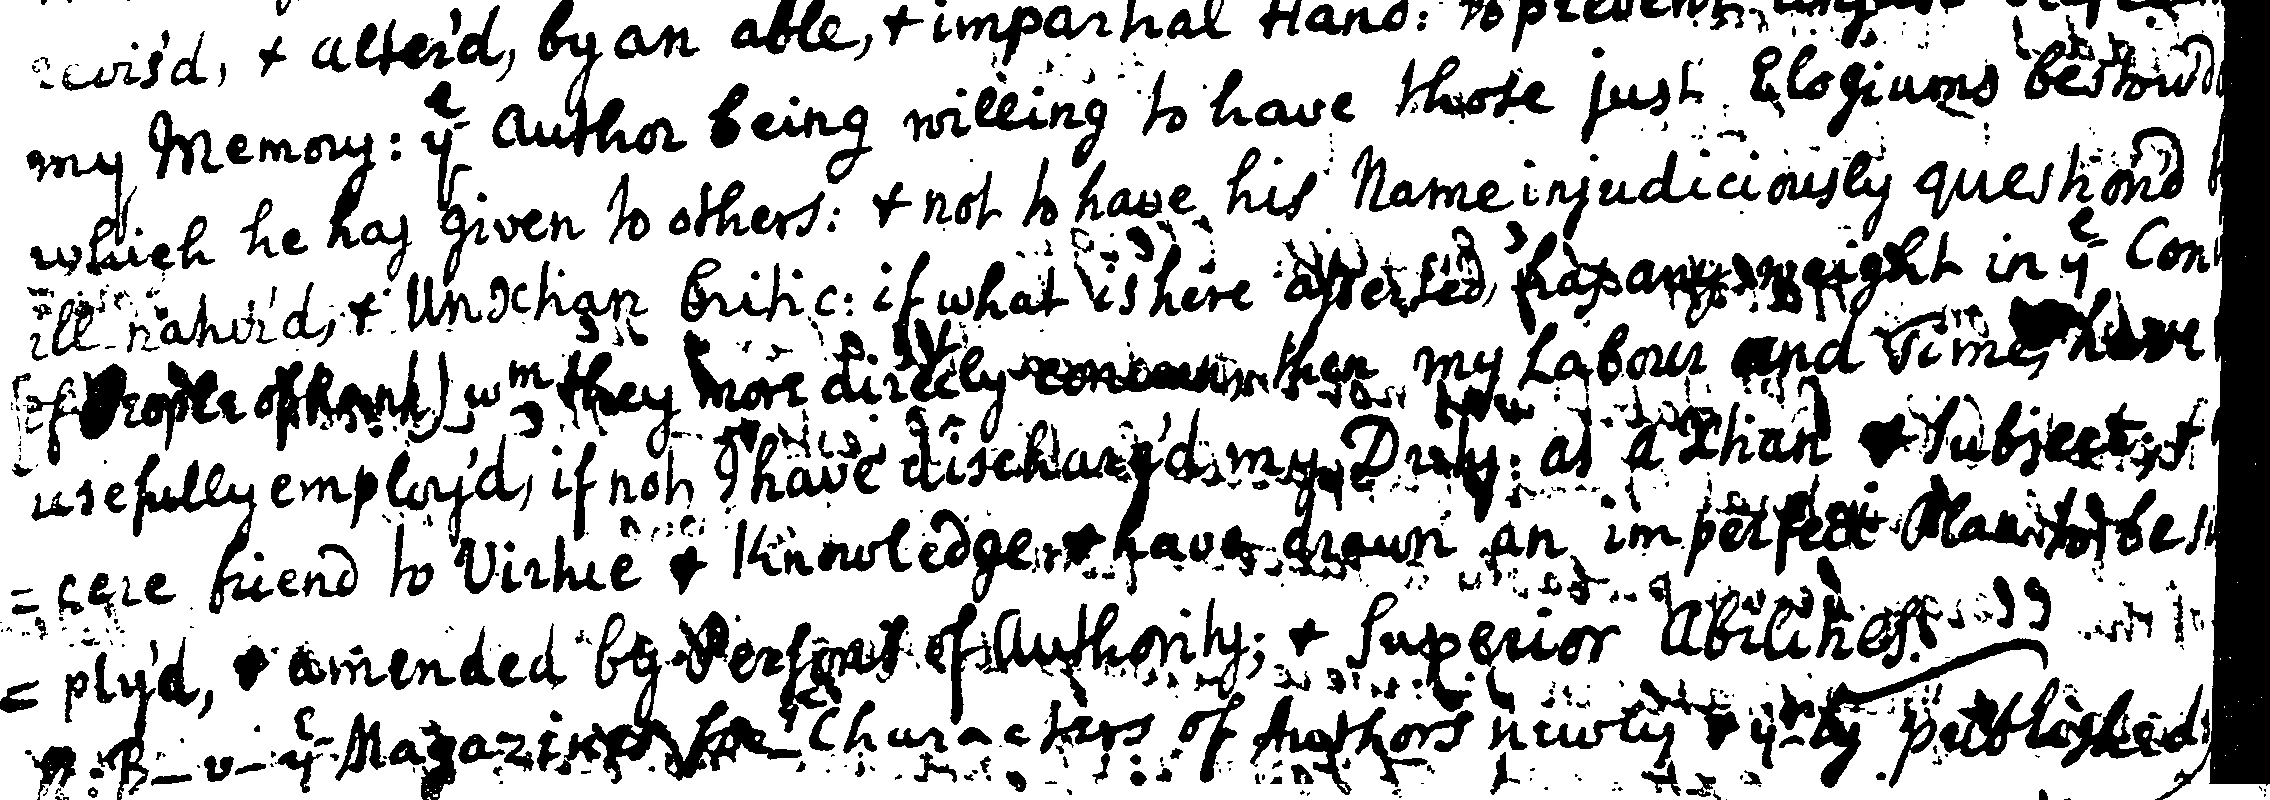 revis'd, + alter'd, by an able, + impartial Hand: to prevent unjust
my Memory: yͤ Author being willing to have those just Elogiums bestow'd
which he has given to others: + not to have his Name injudiciously question'd
ill natur'd, + UnXthan Critic: if what is here asserted, has any weight in yͤ Con
[of People of Rank) wm they more directly concern, then my Labour and Time, have
usefully employ'd, if not, I have discharg'd my Duty: as a Xhan + Subject; +
=cere friend to Virtue + Knowledge, + have drawn an imperfect Plan to be
=ply'd, + amended by Persons of Authority; + Superior Abilities.
N:B_v_yͤ Magazines for Characters of Authors newly + published